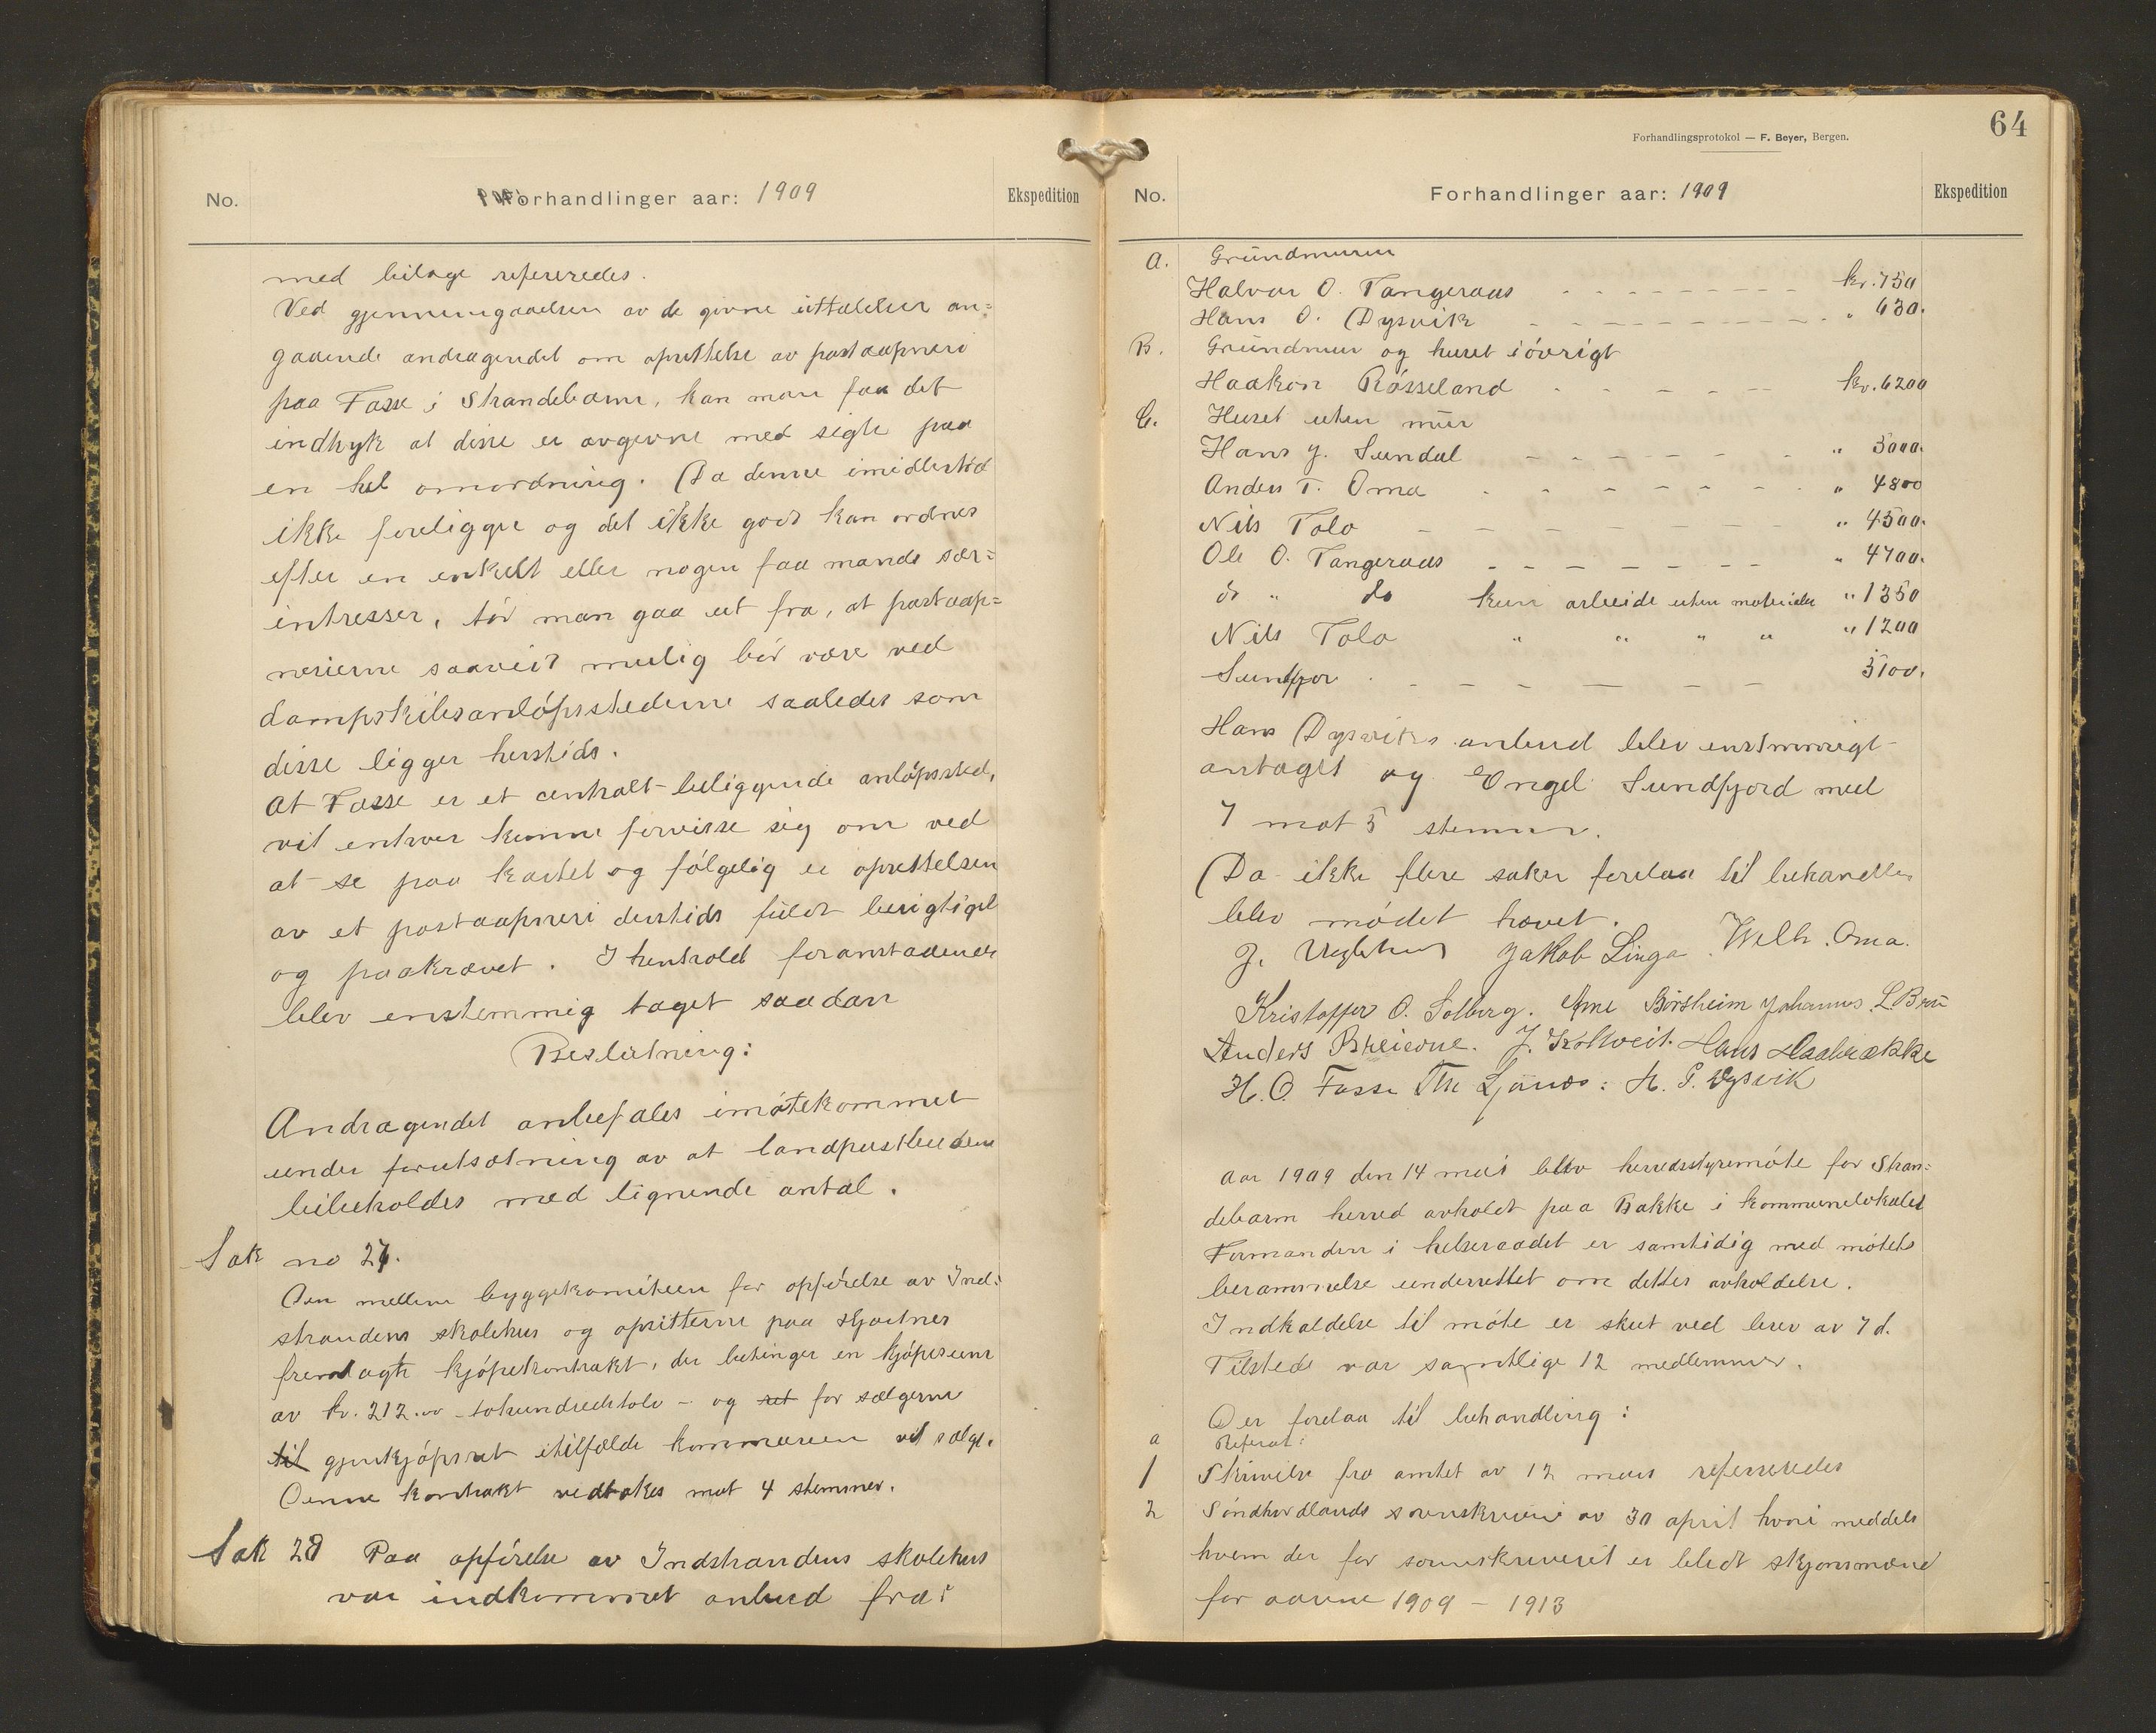 No.
Forhandlinger aar: 1909
Ekspedition
med bilage refereredes.
Ved gjennemgaaelsen av de givne uttalelser an=
gaaende andragendet om oprettelse av postaapneri
paa Fosse i Strandebarm, kan man faa det
indtryk at disse er avgivne med sigte paa
en hel omordning. Da denne imidlertid
ikke foreligger og det ikke godt kan ordnes
efter en enkelt eller nogen faa mands sær=
intresser, tør man gaa ut fra, at postaap=
nerierne saavidt mulig bør være ved
dampskibsanløpsstederne saaledes som
disse ligger herstids.
At Fosse er et centralt beliggende anløpssted,
vil enhver kunne forvisse sig om ved
at se paa kartet og følgelig er oprettelsen
av et postaapneri derstids fuldt berigtiget
og paakrævet. I henhold foranstaaende
blev enstemmig taget saadan
Beslutning:
Andragendet anbefales imøtekommet
under forutsætning av at landpostbudene
bibeholdes med lignende antal.
Sak no 27.
Den mellem byggekomiteen for opførelse av Ind=
strandens skolehus og opsitterne paa Hjartnes
fremlagte kjøpekontrakt, der betinger en kjøpesum
av kr. 212.00 - tohundredetolv - og ret for sælgerne
til gjenkjøpsret itilfælde kommunen vil sælge.
Denne kontrakt vedtokes mot 4 stemmer.
Sak 28 Paa opførelse av Indstrandens skolehus
var indkommet anbud fra:
64
Forhandlingsprotokol — F. Beyer, Bergen.
No.
Forhandlinger aar: 1909
Ekspedition
a. Grundmuren
Halvor O. Tangeraas - - - - kr. 750
Hans O. Dysvik - - - - " 630.
B. Grundmur og huset iøvrigt
Haakon Røsseland - - - - kr. 6200
C. Huset uten mur
Hans J. Sundal - - - - " 5000.
Anders T. Oma - - - - " 4800
Nils Tolo - - - - " 4500.
Ole O. Tangeraas - - - - " 4700.
do " do kun arbeide uten materialer " 1350
Nils Tolo " " " " " 1200
Sundfjor - - - - 5100.
Hans Dysviks anbud blev enstemmigt
antaget og Engel Sundfjord med
7 mot 5 stemmer.
Da ikke flere saker forelaa til behandle
blev mødet hævet.
J. Jakob Linga. Wilh. Oma.
Kristoffer O. Solberg. Arne Børsheim Johannes L. Bru
Anders J. Hans
H. O. Fosse H. P. Dysvik
Aar 1909 den 14 mai blev herredsstyremøte for Stran=
debarm herred avholdt paa Bakke i kommunelokalet
Formanden i helseraadet er samtidig med møtets
berammelse underrettet om dettes avholdelse.
Indkaldelse til møte er skeet ved brev av 7 d.
Tilstede var samtlige 12 medlemmer.
Der forelaa til behandling:
a Referat:
1 Skrivelse fra amtet av 12 mars refereredes
2 Søndhordlands sorenskriveri av 30 april hvori meddeles
hvem der for sorenskriveriet er blevet skjønsmænd
for aarene 1909 - 1913